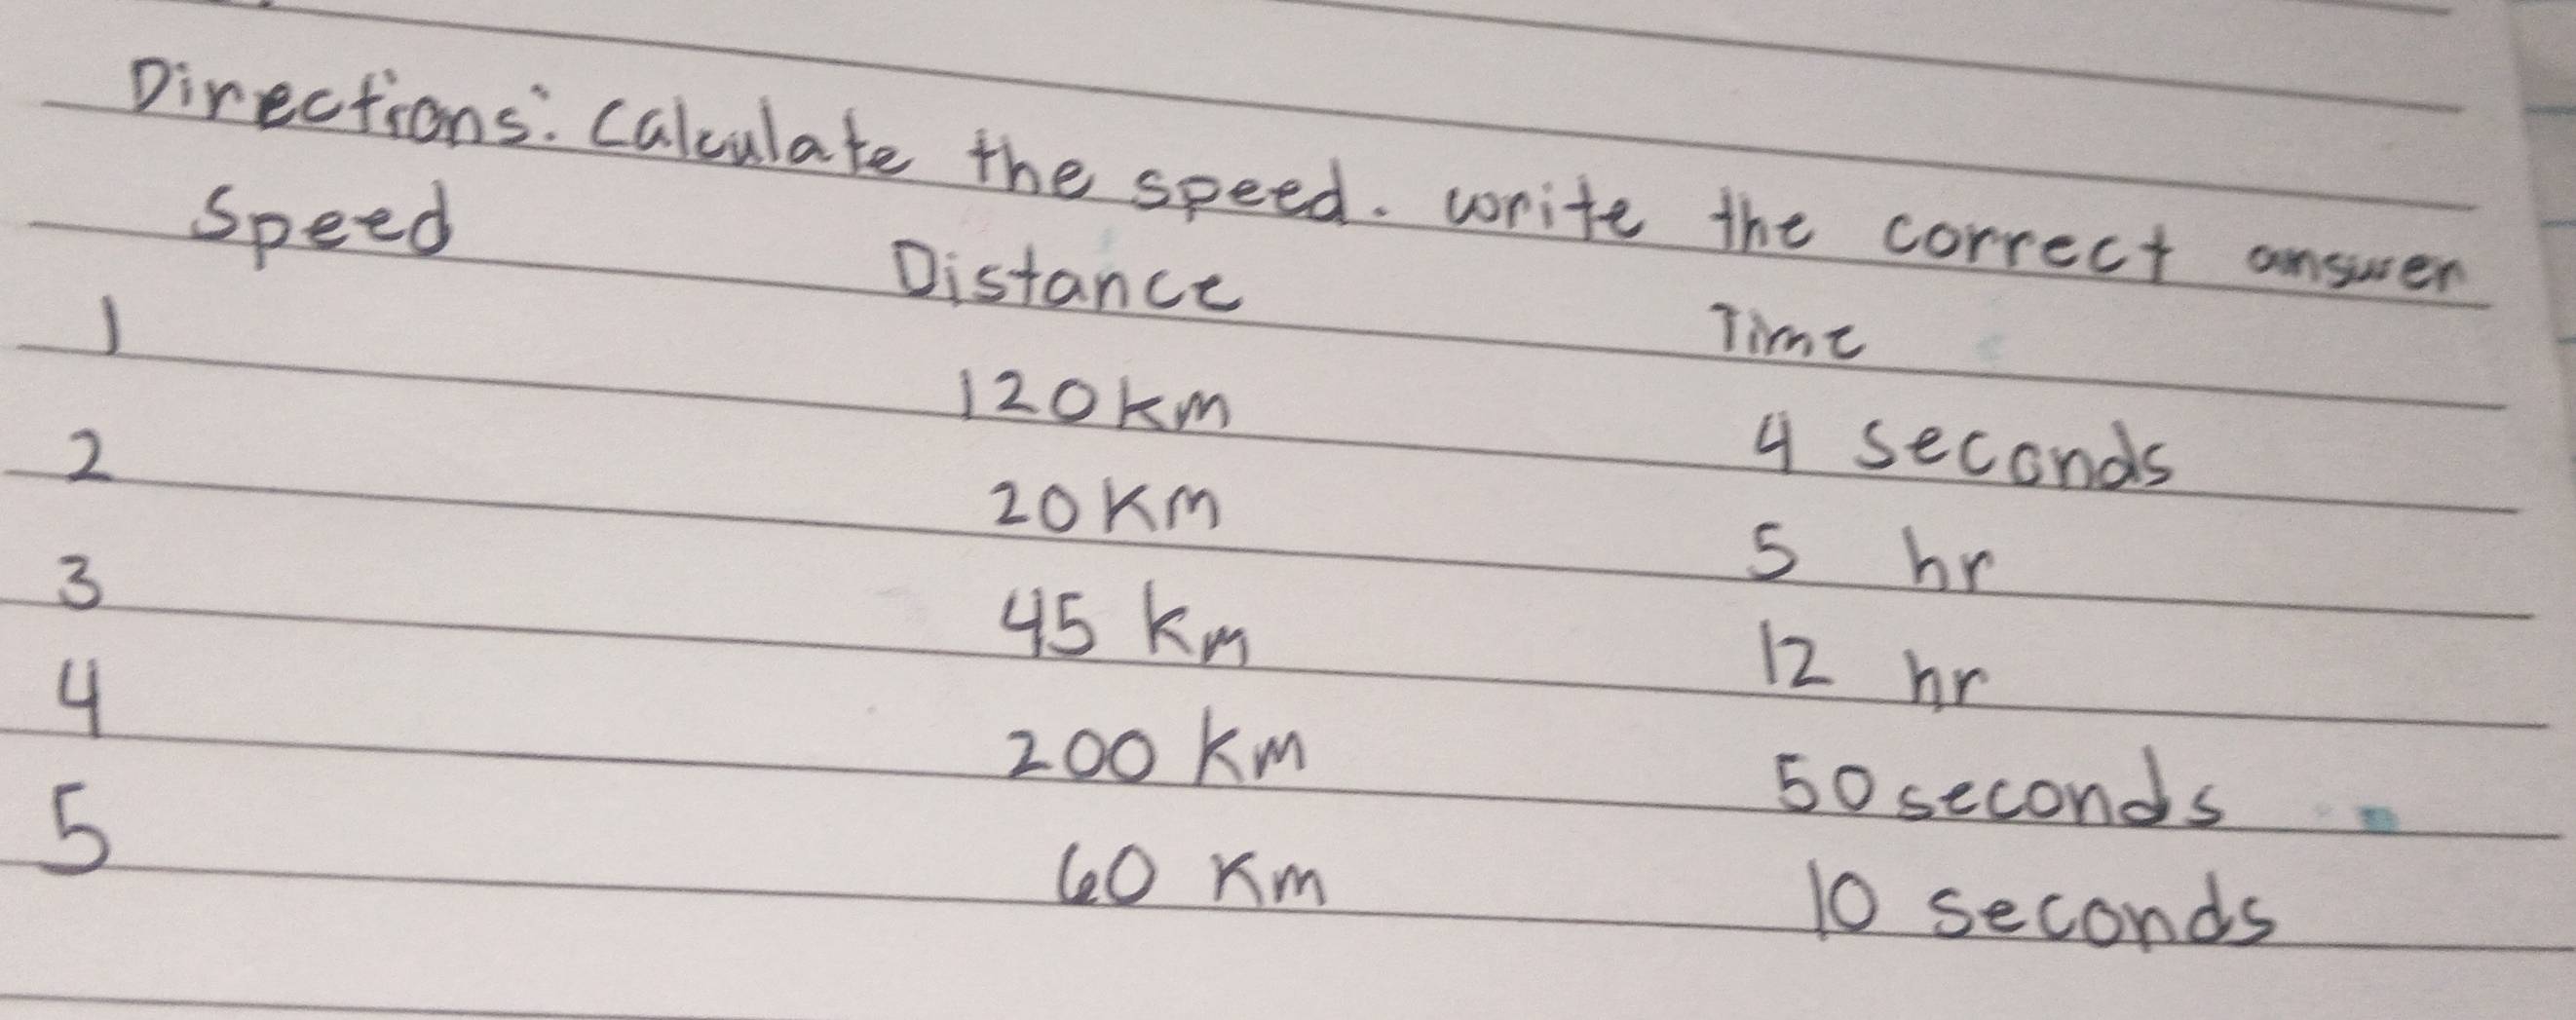 Directions: Calculate the speed. write the correct answer
Speed Distance Time
1 120 km 4 seconds
2 20 km 5 hr
3 45 km 12 hr
4 200 km 50 seconds
5 60 km 10 seconds